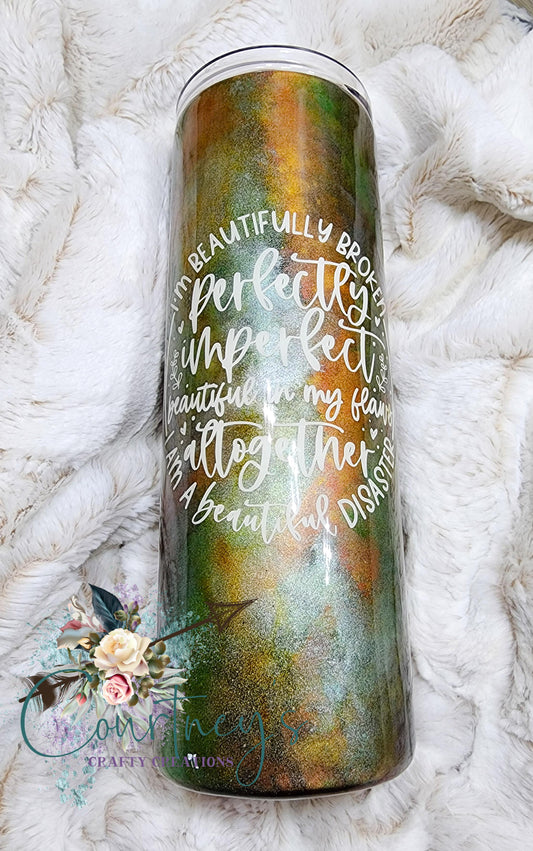 I'M BEAUTIFULLY BROKEN
perfectly
imperfect
beautiful in my flaws
altogether
I AM A beautiful DISASTER
Courtney's
CRAFTY CREATIONS